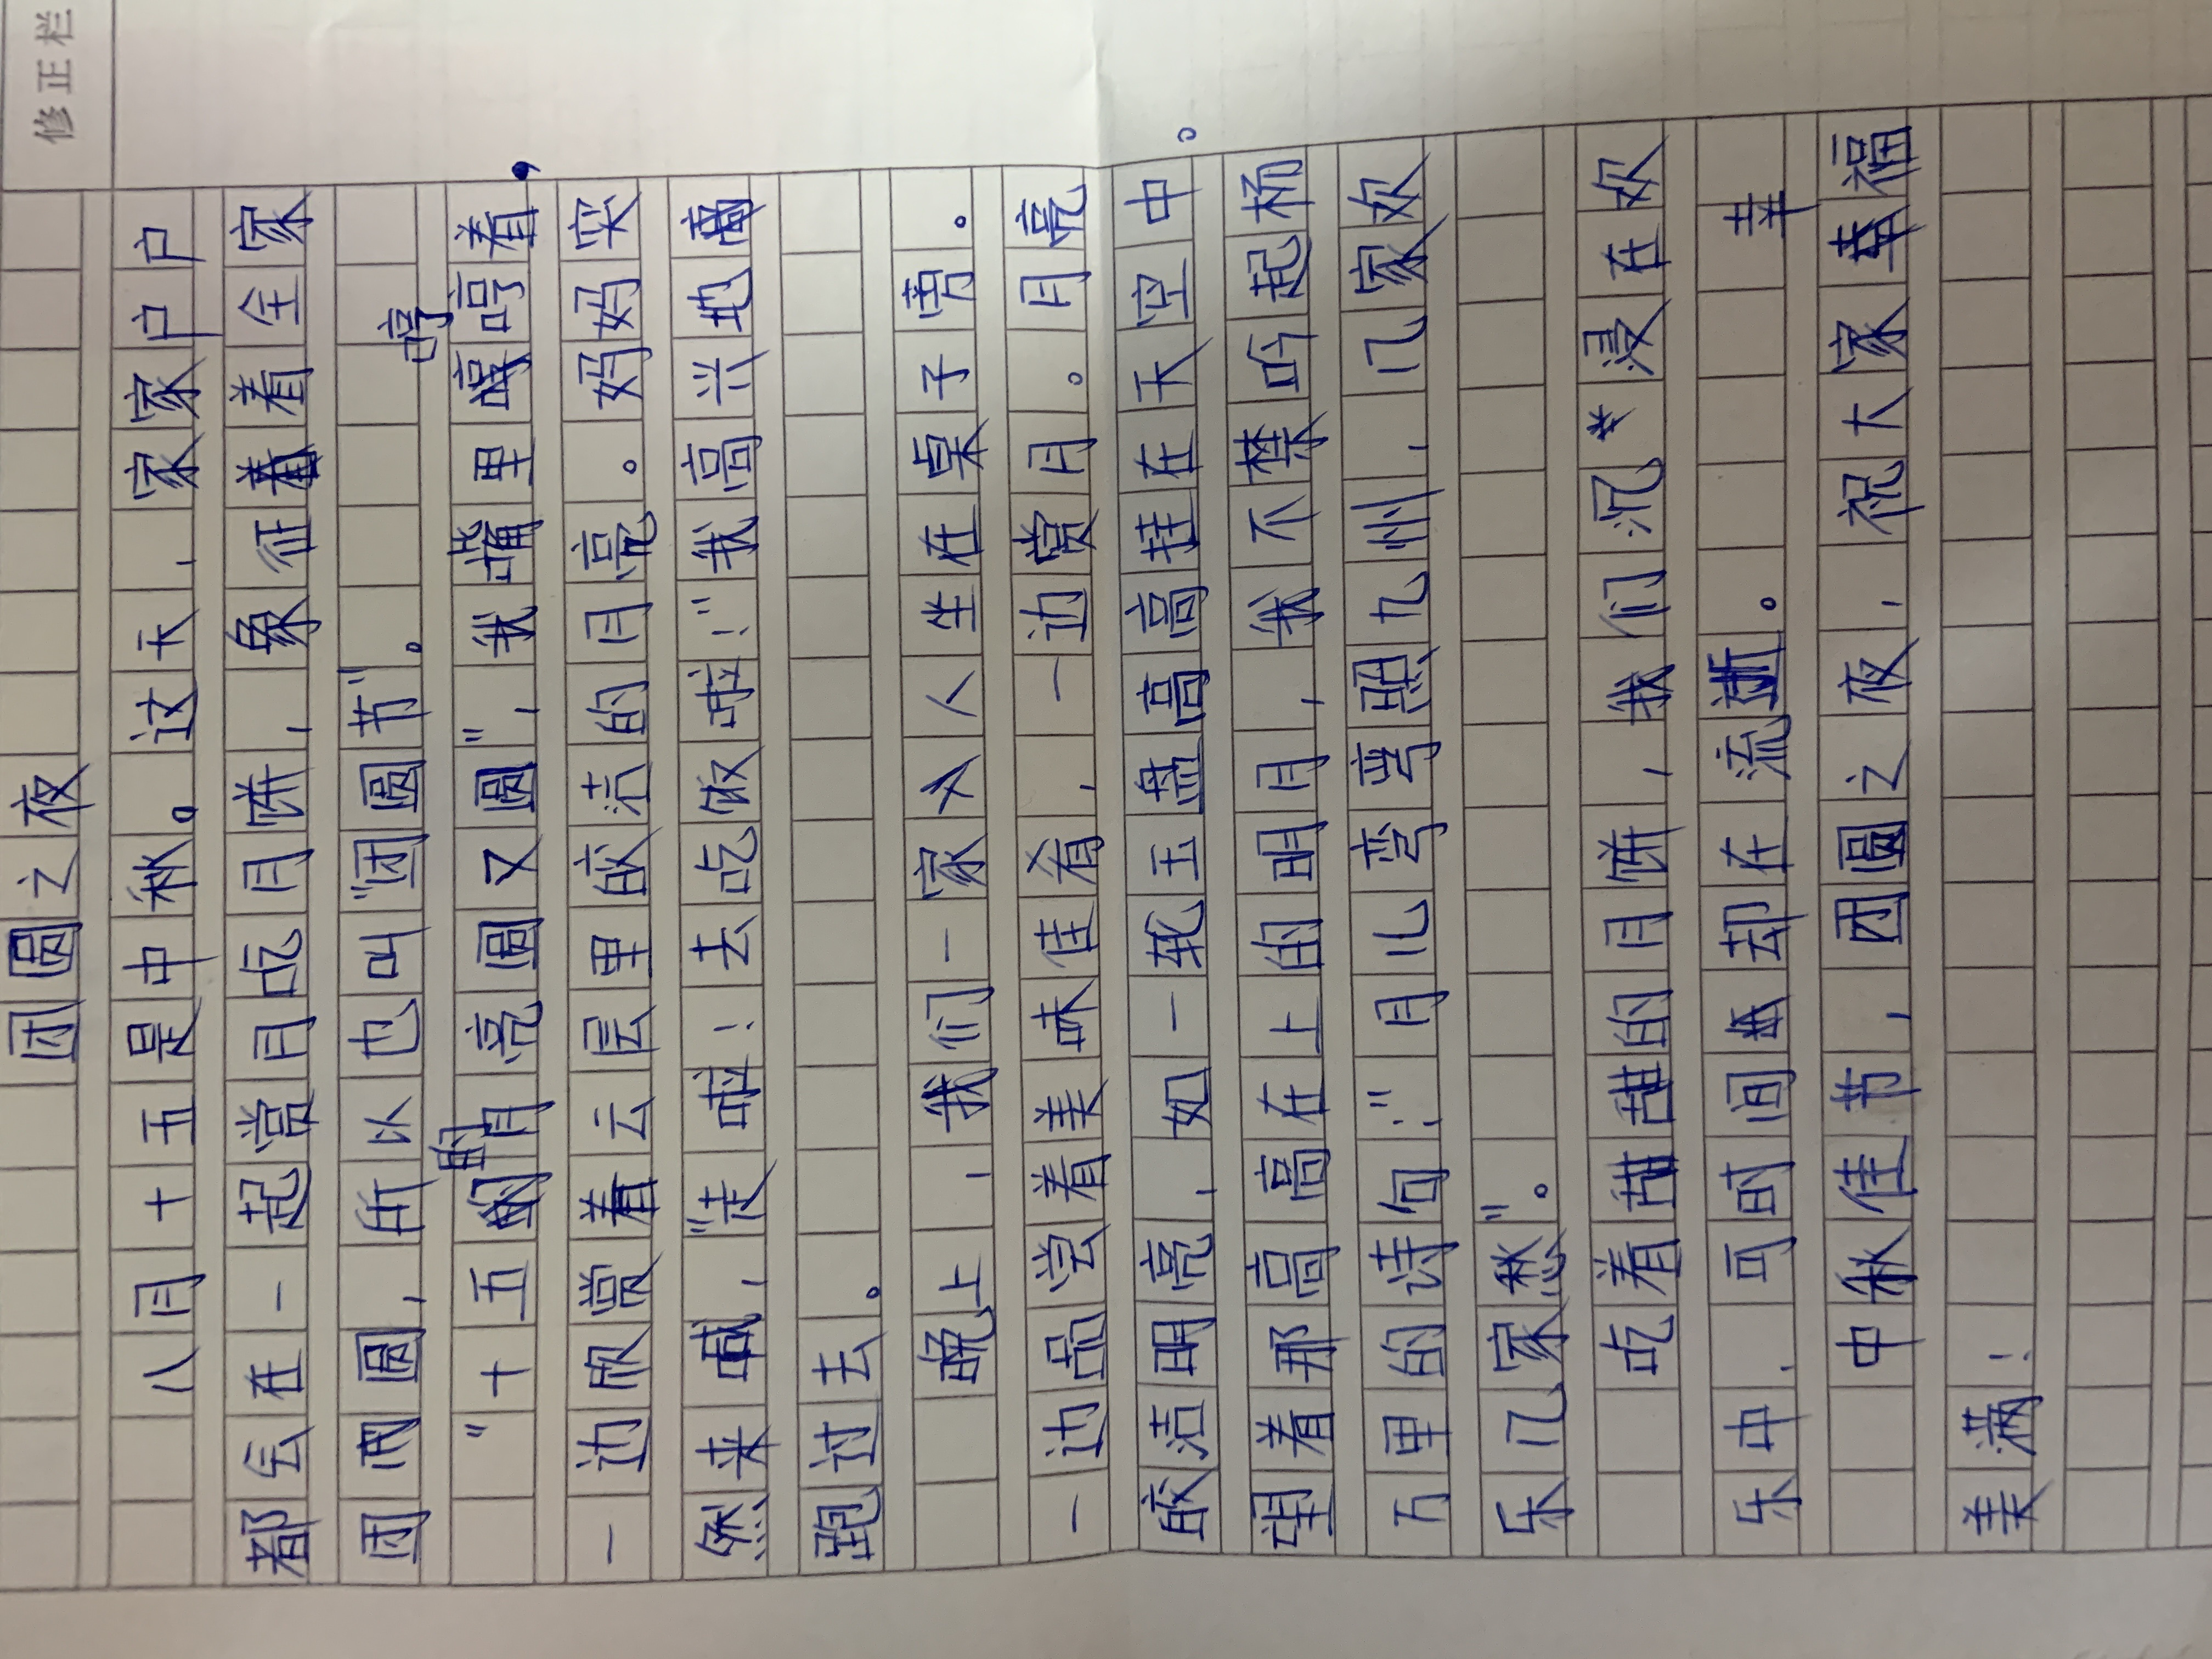 修正栏
团圆之夜
八月十五是中秋。这天,家家户户
都会在一起赏月吃月饼,象征着全家
团团圆,所以也叫“团圆节”。
“十五的月亮圆又圆”,我嘴里哼哼着,
一边欣赏着云层里皎洁的月亮。妈妈突
然来喊,“走啦!去吃饭啦!”我高兴地
跑过去。
晚上,我们一家人坐在桌子旁。
一边品尝着美味佳肴,一边赏月。月亮
皎洁明亮,如一轮玉盘高高挂在天空中。
望着那高高在上的明月,我不禁吟起杨
万里的诗句:“月儿弯弯照九州,几家欢
乐几家愁”。
吃着甜甜的月饼,我们沉浸在欢
乐中,可时间却在流逝。
中秋佳节,团圆之夜,祝大家幸福
美满!